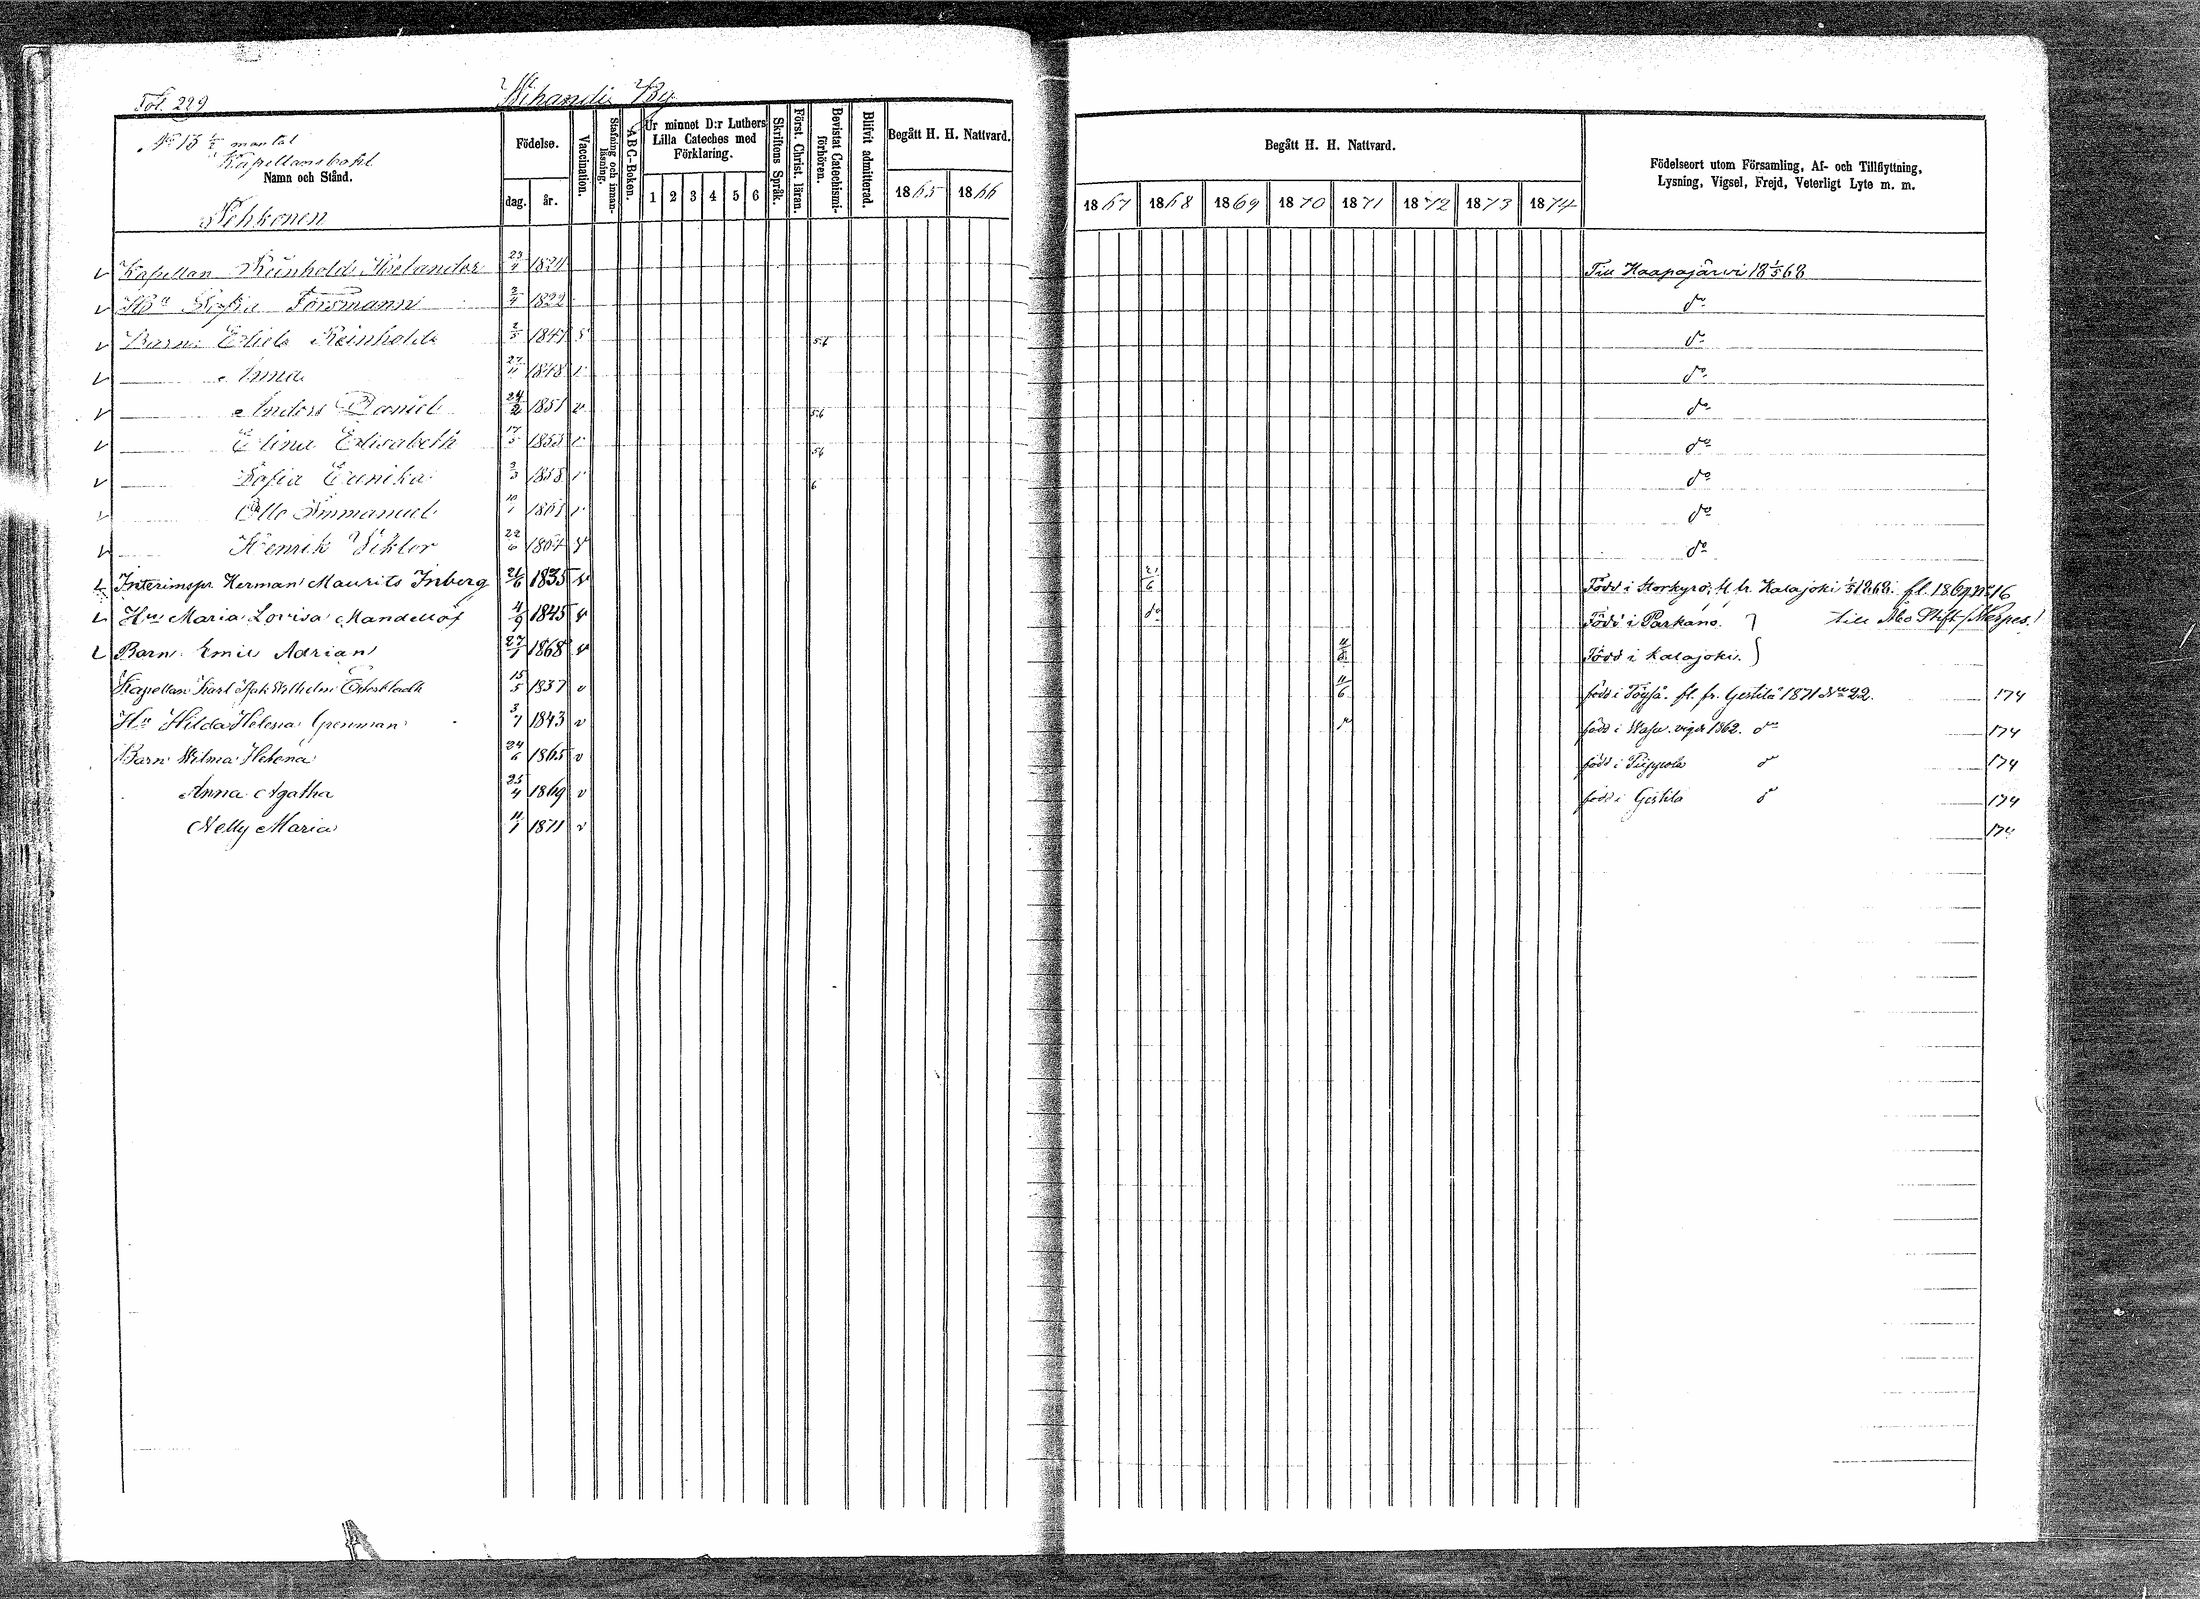 Fol. 229
Wihandi By
No 13 mantal
Kapellansbohl
Namn och Stånd.
Födelse. dag. år.
Vaccination.
Stafning och innanläsning.
ABC-Boken.
Ur minnet D:r Luthers Lilla Cateches med Förklaring.
1 2 3 4 5 6
Skriftens Språk.
Först. Christ. läran.
Bevistat Catechismiförhören.
Blifvit admitterad.
Begått H. H. Nattvard.
1865 1866
Begått H. H. Nattvard.
1867 1868 1869 1870 1871 1872 1873 1874
Födelseort utom Församling, Af- och Tillflyttning, Lysning, Vigsel, Frejd, Veterligt Lyte m. m.
v Kapellan Reinhold Helander 23/4 1824 Till Haapajärvi 18 1/5 68
v Hu Sofia Forsmann 2/4 1822 do
v Barn: Edied Reinhold 2/5 1847 v 5.6 do
v Anna 27/11 1848 v do
v Anders Daniel 24/2 1851 v 5.6 do
v Elina Elisabeth 17/5 1853 v 5.6 do
v Sofia Eunika 2/3 1858 v 6 do
v Otto Immanuel 10/1 1861 v do
v Henrik Viktor 22/6 1864 v do
v Interimspr. Herman Maurits Inberg 21/6 1835 v 21/6 Född i Storkyro; fl. fr. Kalajoki 1/5 1868. fl. 1869 No 16
v Hu Maria Lovisa Mandellöf 4/9 1845 v do Född i Parkano. } till Åbo Stift
v Barn Emil Adrian 27/1 1868 v Född i Kalajoki.
Kapellan Karl Isak Wilhelm Cederbladh 15/5 1837 v 11/6 född i Töysä. fl. fr. Gestilä 1871 No 22. 174
Hu Hilda Helena Grenman 3/7 1843 v född i Wasa. vigd 1862. do 174
Barn Wilma Helena 24/6 1865 v född i Piippola do 174
Anna Agatha 25/4 1869 v född i Gestila do 174
Nelly Maria 11/1 1871 v 174